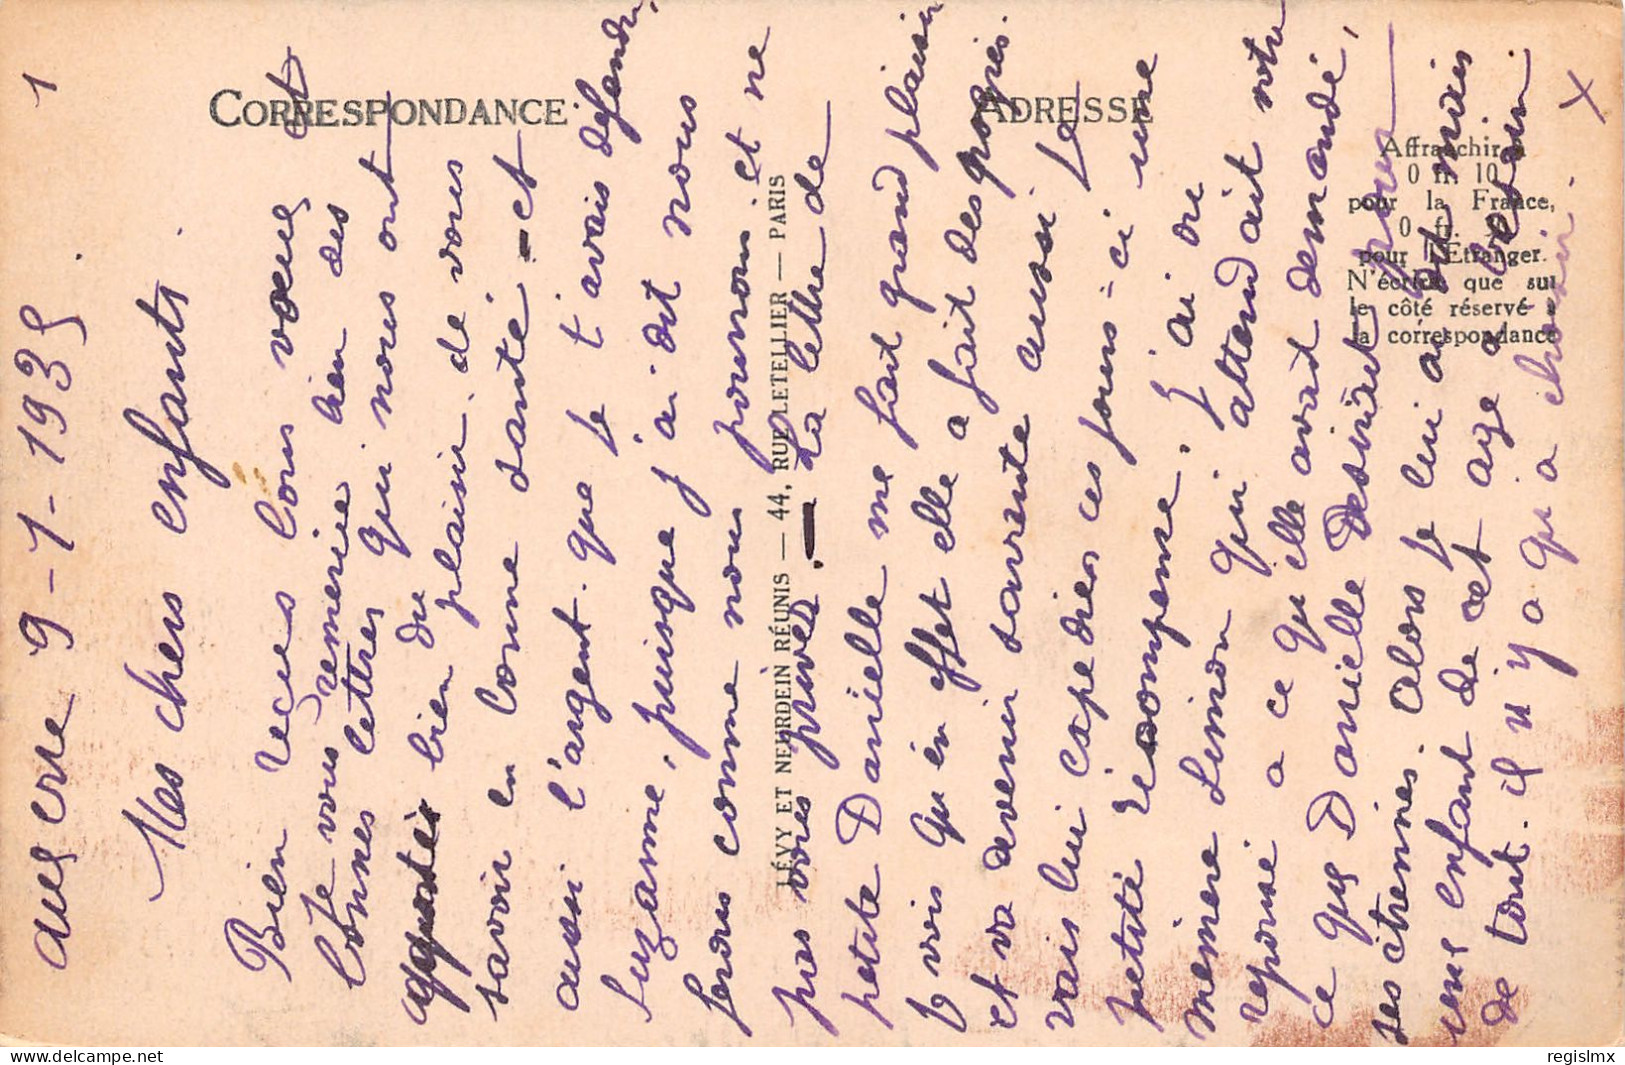 Auxerre 9-1-1935
1
Mes chers enfants.
Bien reçues bons vœux et
Je vous remercie bien des
bonnes lettres qui nous ont
apporté bien du plaisir. de vous
savoir en bonne santé - et
aussi l'argent. que je t'avais défendu,
Suzanne, puisque j'ai dit nous
ferons comme nous pourrons et ne
pas vous priver. — La lettre de
petite Danielle me fait grand plaisir
Je vois qu'en effet elle a fait des progrès.
et va devenir savante aussi Je
vais lui expédier ces jours-ci une
petite récompense. J'ai vu
mémère Simon qui attendait votre
réponse a ce qu'elle avait demandé,
ce que Danielle desirait pour
ses étrennes. Alors je lui ai dit mais
une enfant de cet age a besoin
de tout. il n'y a qu'a choisir.
X
CORRESPONDANCE
ADRESSE
Affranchir à
0 fr. 10
pour la France,
0 fr.
pour l'Etranger.
N'écrire que sur
le côté réservé à
la correspondance
LÉVY ET NEURDEIN RÉUNIS — 44, RUE LETELLIER — PARIS
delcampe.net
regislmx